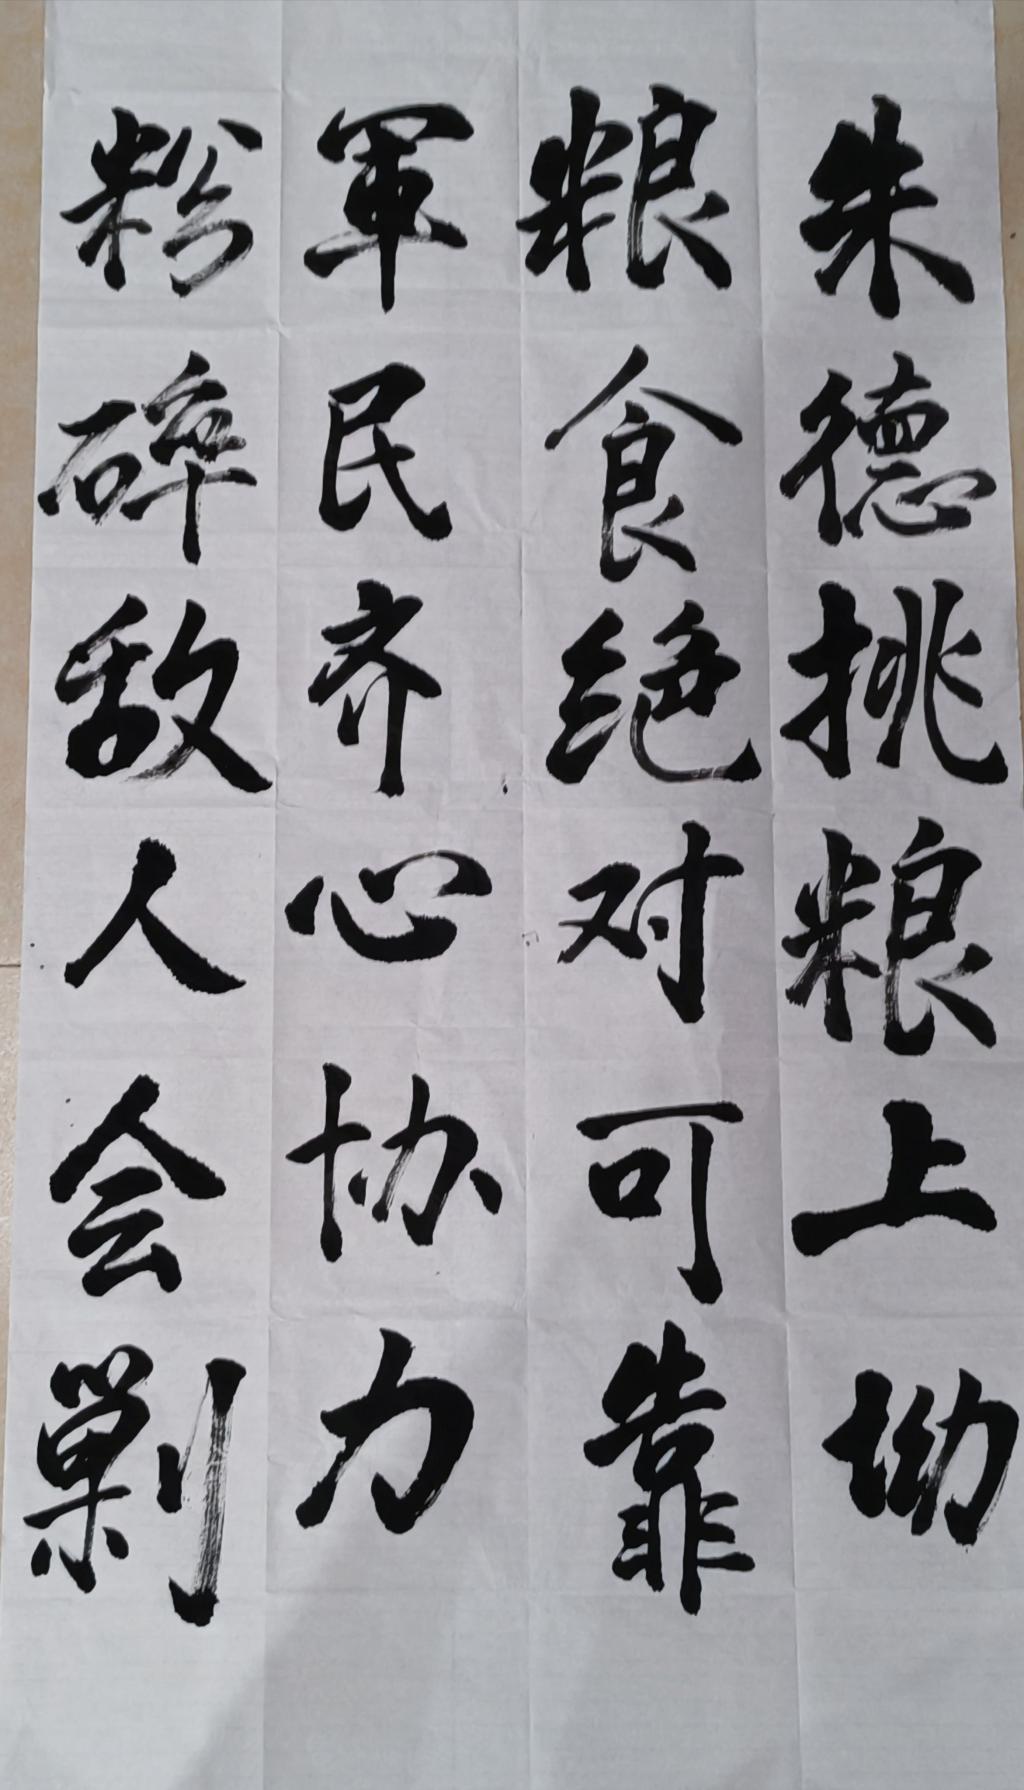 朱德挑粮上坳
粮食绝对可靠
軍民齐心协力
粉碎敌人会剿